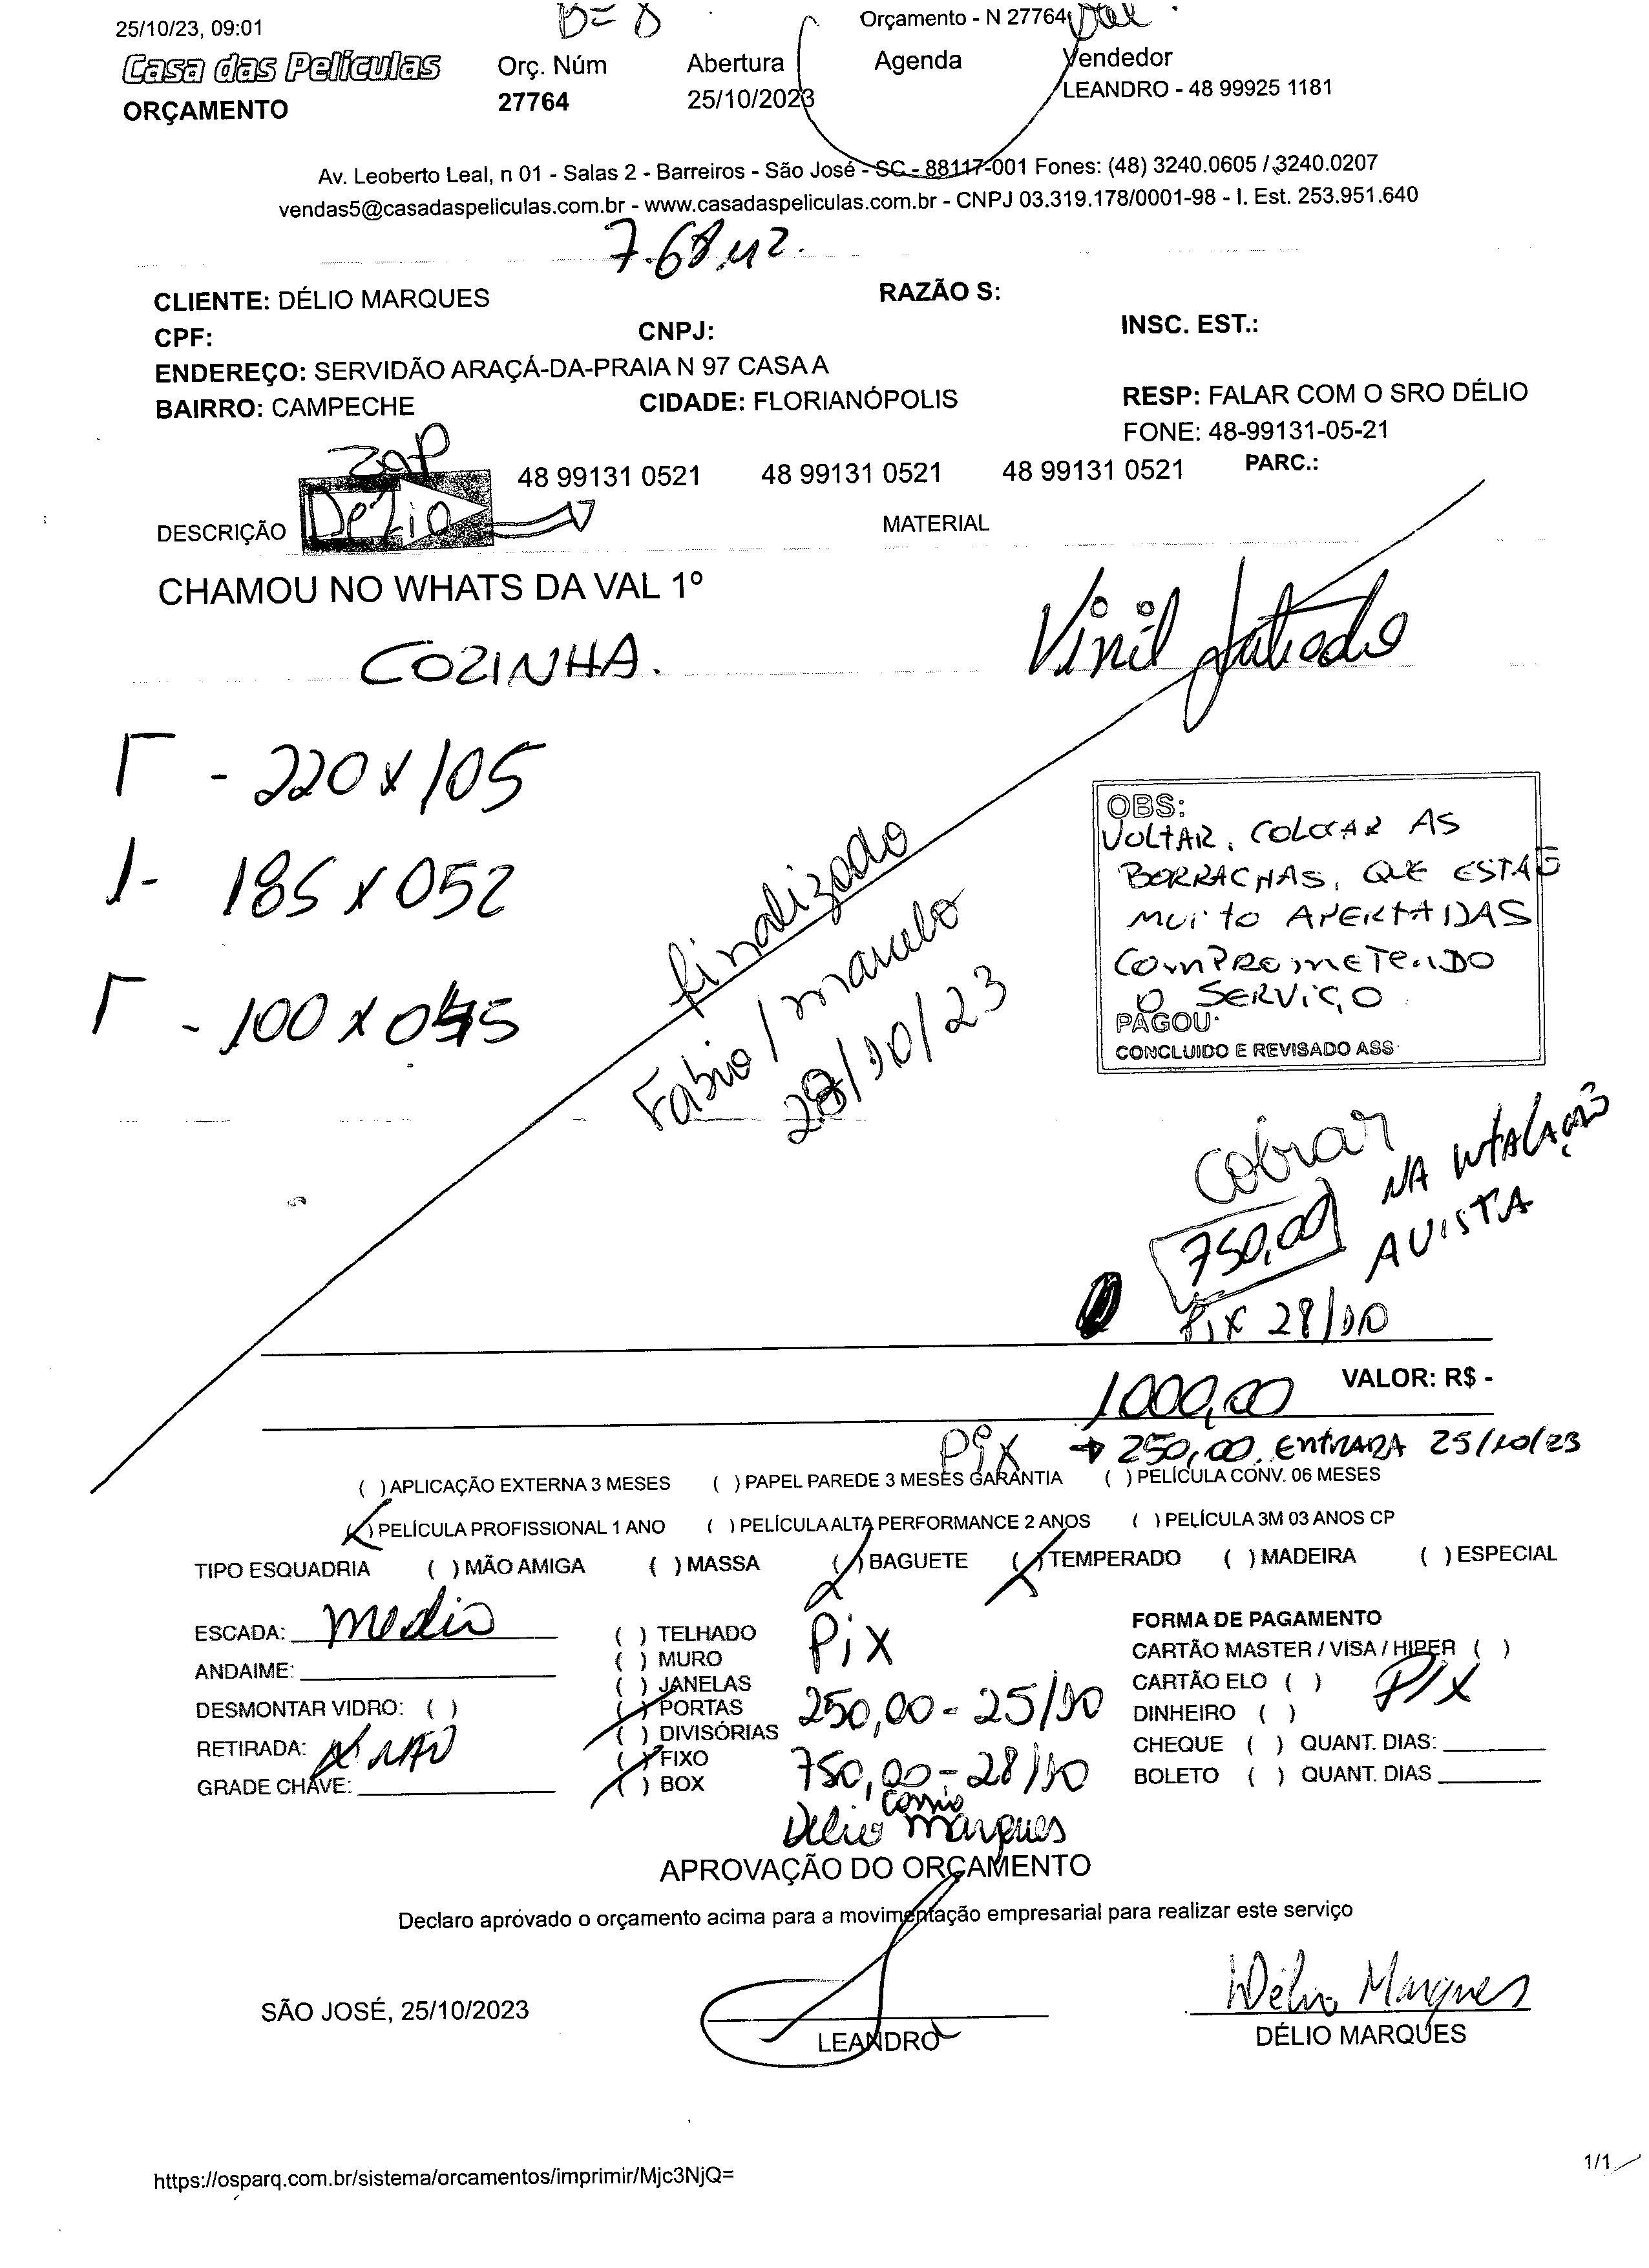 25/10/23, 09:01
B= 8
Orçamento - N 27764
Val
Casa das Películas
Orç. Núm
Abertura
Agenda
Vendedor
ORÇAMENTO
27764
25/10/2023
LEANDRO - 48 99925 1181
Av. Leoberto Leal, n 01 - Salas 2 - Barreiros - São José - SC - 88117-001 Fones: (48) 3240.0605 / 3240.0207
vendas5@casadaspeliculas.com.br - www.casadaspeliculas.com.br - CNPJ 03.319.178/0001-98 - I. Est. 253.951.640
7.68 M2.
CLIENTE: DÉLIO MARQUES
RAZÃO S:
CPF:
CNPJ:
INSC. EST.:
ENDEREÇO: SERVIDÃO ARAÇÁ-DA-PRAIA N 97 CASA A
BAIRRO: CAMPECHE
CIDADE: FLORIANÓPOLIS
RESP: FALAR COM O SRO DÉLIO
FONE: 48-99131-05-21
Zap
Delio
48 99131 0521
48 99131 0521
48 99131 0521
PARC.:
DESCRIÇÃO
MATERIAL
CHAMOU NO WHATS DA VAL 1º
COZINHA.
Vinil Jateado
1 - 220 x 105
1 - 185 x 052
1 - 100 x 045
finalizado
Fabio / marcelo
28/10/23
OBS:
VOLTAR, COLOCAR AS
BORRACHAS, QUE ESTÃO
MUITO APERTADAS
COMPROMETENDO
O SERVIÇO
PAGOU
CONCLUIDO E REVISADO ASS
Cobrar
750,00
NA INTALAÇÃO
AVISTA
Pix 28/10
1000,00
VALOR: R$ -
Pix
250,00 ENTRADA 25/10/23
( ) APLICAÇÃO EXTERNA 3 MESES
( ) PAPEL PAREDE 3 MESES GARANTIA
( ) PELÍCULA CONV. 06 MESES
( ) PELÍCULA PROFISSIONAL 1 ANO
( ) PELÍCULA ALTA PERFORMANCE 2 ANOS
( ) PELÍCULA 3M 03 ANOS CP
TIPO ESQUADRIA
( ) MÃO AMIGA
( ) MASSA
( ) BAGUETE
( ) TEMPERADO
( ) MADEIRA
( ) ESPECIAL
ESCADA: medio
ANDAIME:
DESMONTAR VIDRO: ( )
RETIRADA: X NÃO
GRADE CHAVE:
( ) TELHADO
( ) MURO
( ) JANELAS
( ) PORTAS
( ) DIVISÓRIAS
( ) FIXO
( ) BOX
Pix
250,00 - 25/10
750,00 - 28/10
Delio Marques
FORMA DE PAGAMENTO
CARTÃO MASTER / VISA / HIPER ( )
CARTÃO ELO ( )
PIX
DINHEIRO ( )
CHEQUE ( ) QUANT. DIAS:
BOLETO ( ) QUANT. DIAS
APROVAÇÃO DO ORÇAMENTO
Declaro aprovado o orçamento acima para a movimentação empresarial para realizar este serviço
SÃO JOSÉ, 25/10/2023
LEANDRO
Délio Marques
DÉLIO MARQUES
https://osparq.com.br/sistema/orcamentos/imprimir/Mjc3NjQ=
1/1